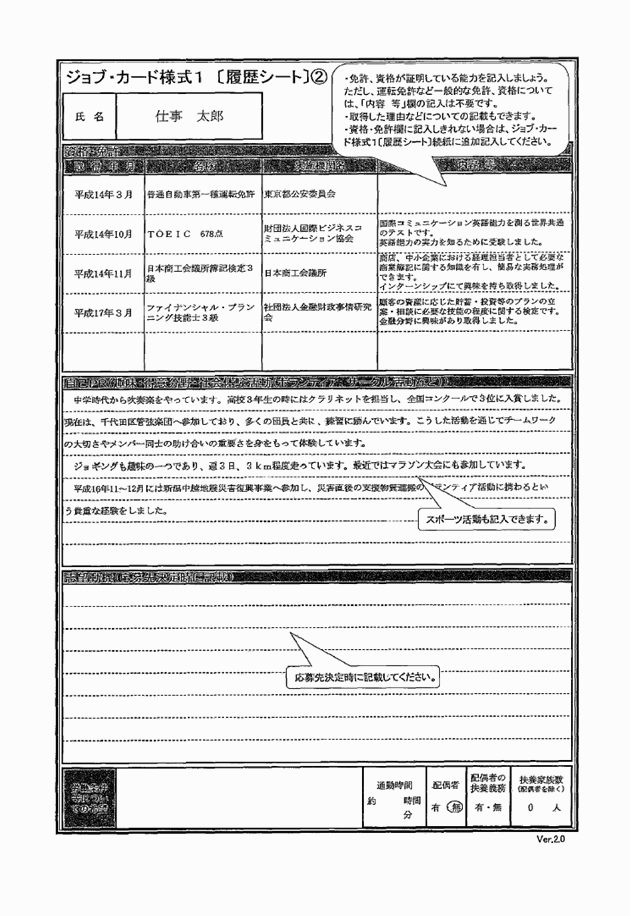 ジョブ・カード様式1〔履歴シート〕②
・免許、資格が証明している能力を記入しましょう。
ただし、運転免許など一般的な免許、資格について
は、「内容 等」欄の記入は不要です。
・取得した理由などについての記載もできます。
・資格・免許欄に記入しきれない場合は、ジョブ・カー
ド様式1〔履歴シート〕続紙に追加記入してください。
氏 名
仕事 太郎
平成14年3月
普通自動車第一種運転免許
東京都公安委員会
平成14年10月
TOEIC 678点
財団法人国際ビジネスコ
ミュニケーション協会
国際コミュニケーション英語能力を測る世界共通
のテストです。
英語能力の実力を知るために受験しました。
平成14年11月
日本商工会議所簿記検定3
級
日本商工会議所
商店、中小企業における経理担当者として必要な
商業簿記に関する知識を有し、簡易な実務処理が
できます。
インターンシップにて興味を持ち取得しました。
平成17年3月
ファイナンシャル・プラン
ニング技能士3級
社団法人金融財政事情研究
会
顧客の資産に応じた貯蓄・投資等のプランの立
案・相談に必要な技能の程度に関する検定です。
金融分野に興味があり取得しました。
中学時代から吹奏楽をやっています。高校3年生の時にはクラリネットを担当し、全国コンクールで3位に入賞しました。
現在は、千代田区管弦楽団へ参加しており、多くの団員と共に、練習に励んでいます。こうした活動を通じてチームワーク
の大切さやメンバー同士の助け合いの重要さを身をもって体験しています。
ジョギングも趣味の一つであり、週3日、3km程度走っています。最近ではマラソン大会にも参加しています。
平成16年11~12月には新潟中越地震災害復興事業へ参加し、災害直後の支援物資運搬のボランティア活動に携わるとい
う貴重な経験をしました。
スポーツ活動も記入できます。
応募先決定時に記載してください。
通勤時間
約 時間
分
配偶者
有 無
配偶者の
扶養義務
有・無
扶養家族数
(配偶者を除く)
0 人
Ver.2.0